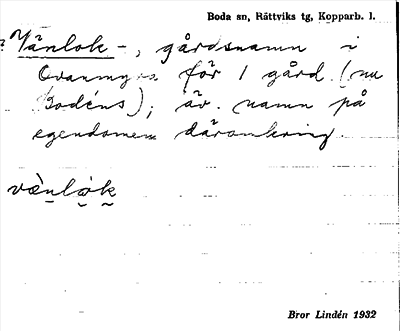 Boda sn, Rättviks tg, Kopparb. l.
? Vänlok-, gårdsnamn i
Ovanmyra för 1 gård (nu
Bodéns); äv. namn på
egendomen däromkring.
vä̀nlok
Bror Lindén 1932